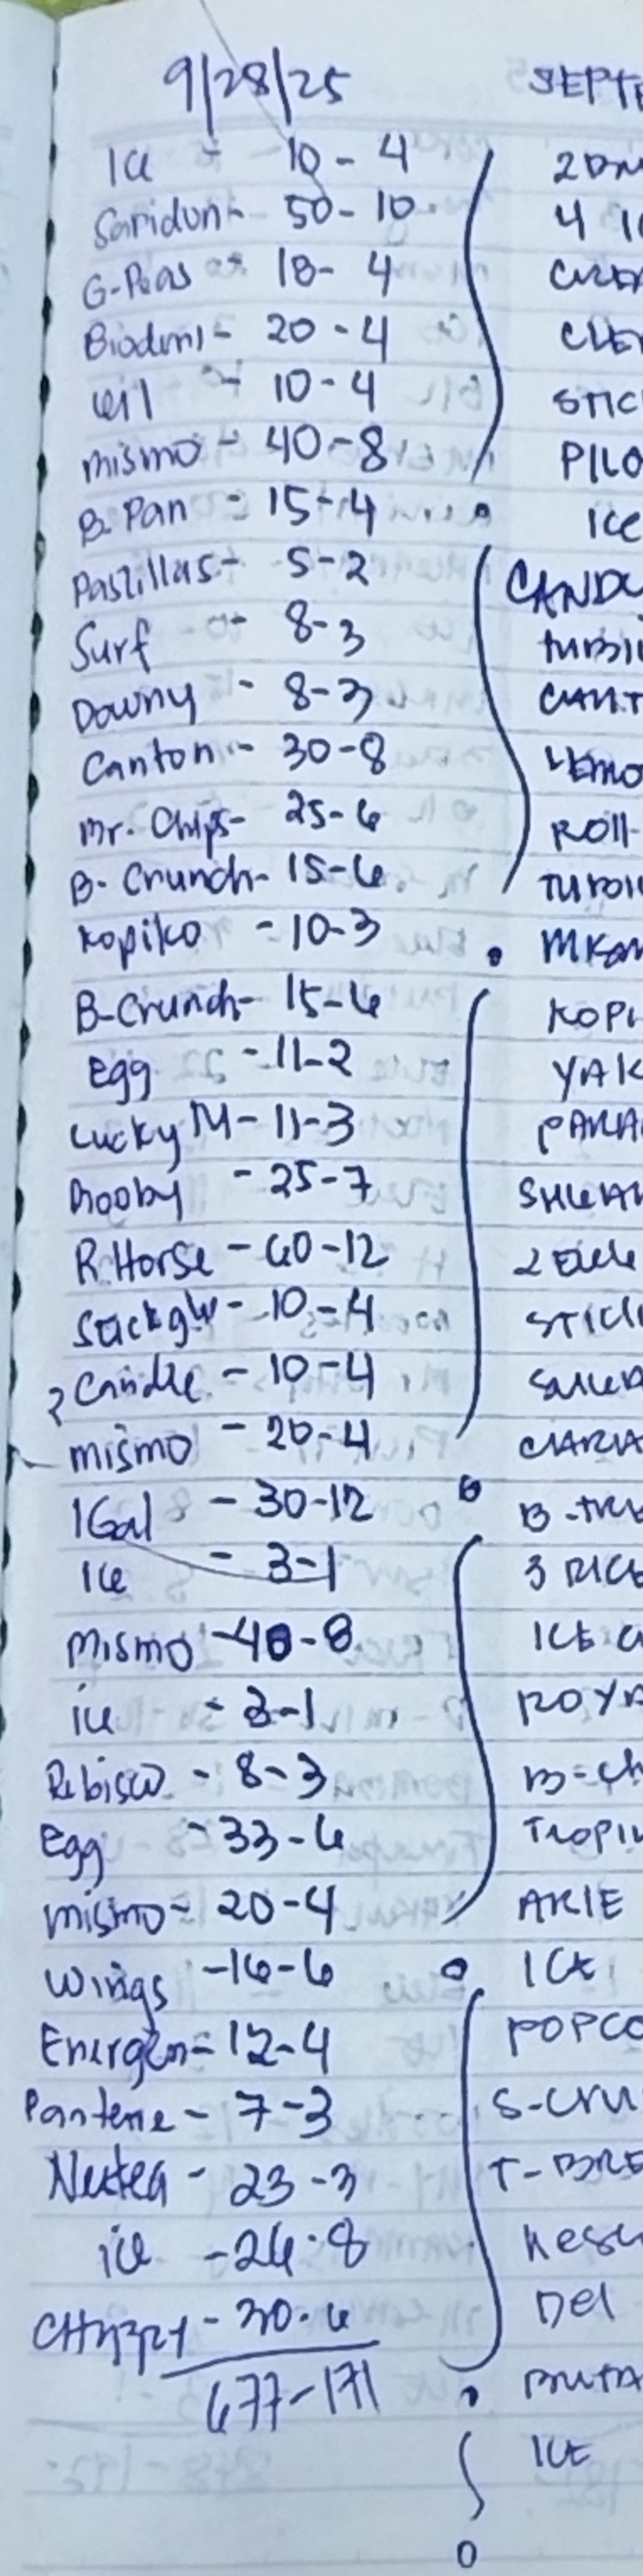 9/28/25
Ice - 10 - 4
Saridon - 50 - 10
G-Peas - 18 - 4
Bioderm - 20 - 4
oil - 10 - 4
mismo - 40 - 8
B. Pan - 15 - 4
Pastillas - 5 - 2
Surf - 8 - 3
Downy - 8 - 3
Canton - 30 - 8
Mr. Chips - 25 - 6
B-Crunch - 15 - 6
Kopiko - 10 - 3
B-Crunch - 15 - 6
Egg - 11 - 2
Lucky M - 11 - 3
Booby - 25 - 7
R. Horse - 60 - 12
- 10 - 4
? Candle - 10 - 4
mismo - 20 - 4
1Gal - 30 - 12
Ice - 3 - 1
Mismo - 40 - 8
ice - 3 - 1
Rebisco - 8 - 3
Egg - 33 - 6
mismo - 20 - 4
Wings - 16 - 6
Energen - 12 - 4
Pantene - 7 - 3
Nestea - 23 - 3
ice - 26 - 8
CHIPPY - 30 - 6
677 - 171
SEPTE
4 1
STIC
PILO
ICE
CANDL
LEMO
ROLL
KOPI
YAK
PARA
STICK
3 RICE
ICE C
ROYA
B-CH
TROPI
ARIE
ICE
POPCO
S-CRU
T-BRE
Del
ICE